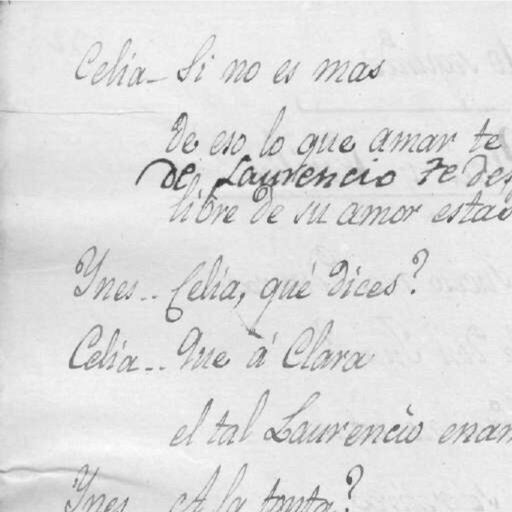 Celia- Si no es mas
de eso lo que amar te
de Laurencio te des
libre de su amor estas
Ynes.. Celia, qué dices?
Celia.. Que á Clara
el tal Laurencio enam
Ynes A la tonta?